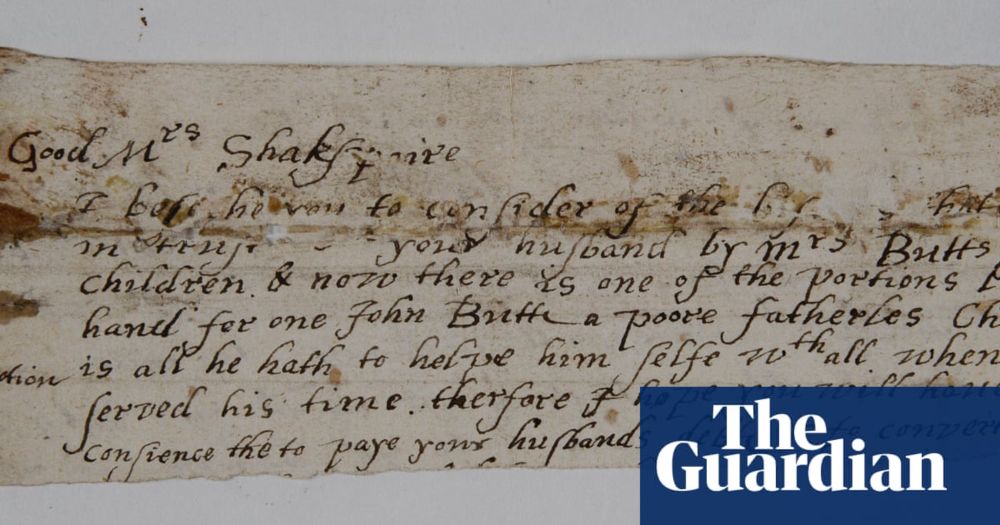 Good Mrs Shakspaire
you to consider of the
in trust your husband by Mrs Butts
children & now there is one of the portions
hand for one John Butte a poore fatherles Ch
is all he hath to helpe him selfe wth all when
ction
served his time therfore I hope you will have
Consience the to paye your husbands
The
Guardian